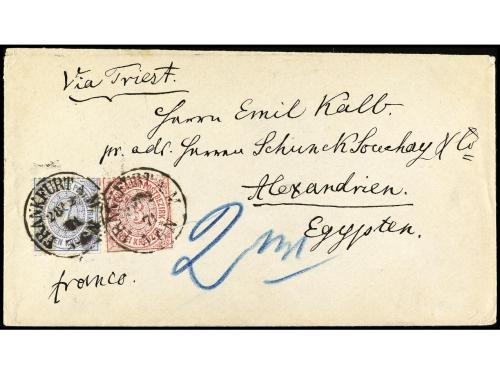 Via Triest.
Herrn Emil Kalb.
pr. adr. Herren Schunck Souchay & Co
Alexandrien.
Egypten.
franco.
FRANKFURT A. M.
FRANKFURT A. M.
2